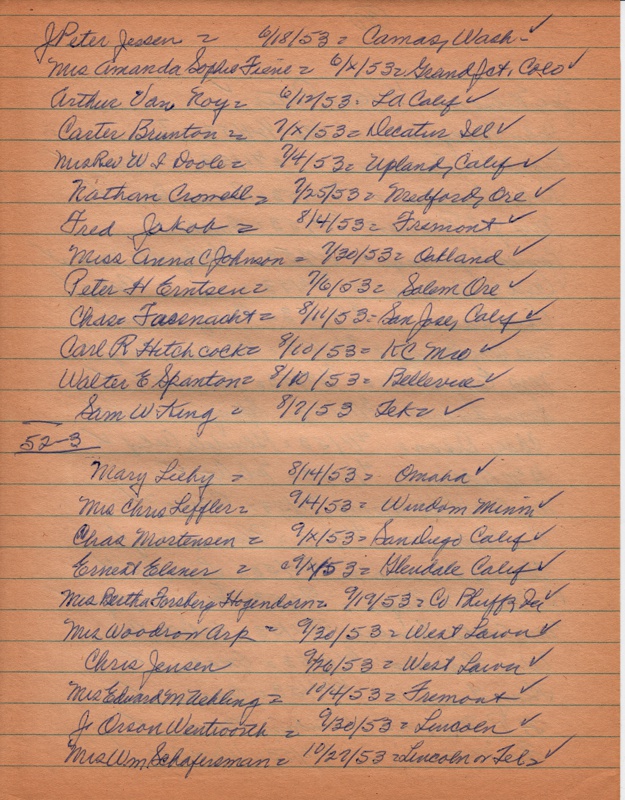 J Peter Jessen = 6/18/53 = Camas, Wash - ✓
Mrs Amanda Sophie Fiene = 6/x/53 = Grand Jct, Colo ✓
Arthur Van Noy = 6/12/53 = LA Calif ✓
Carter Brunton = 7/x/53 = Decatur Ill ✓
Mrs Rev W I Doole = 7/4/53 = Upland, Calif ✓
Nathan Crowell = 7/25/53 = Medford, Ore ✓
Fred Jakob = 8/4/53 = Fremont ✓
Miss Anna C Johnson = 7/30/53 = Oakland ✓
Peter H Erntsen = 7/6/53 = Salem Ore ✓
Chas = Fassnacht = 8/11/53 = San Jose, Calif ✓
Carl R Hitchcock = 8/10/53 = KC Mo ✓
Walter E Spanton = 8/10/53 = Bellevue ✓
Sam W King = 8/7/53 Tek = ✓
52-3
Mary Lieby = 8/14/53 = Omaha ✓
Mrs Chris Leffler = 9/4/53 = Windom Minn ✓
Chas Mortensen = 9/x/53 = San Diego Calif ✓
Ernest Elsner = 9/x/53 = Glendale Calif ✓
Mrs Bertha Forsberg Hogendorn = 9/19/53 = Co Bluffs Ia ✓
Mrs Woodrow Arp = 9/20/53 = West Lawn ✓
Chris Jensen 9/26/53 = West Lawn ✓
Mrs Edward M Uehling = 10/4/53 = Fremont ✓
Jr Orson Wentworth = 9/30/53 = Lincoln ✓
Mrs Wm Schafersman = 10/27/53 = Lincoln or Tek = ✓